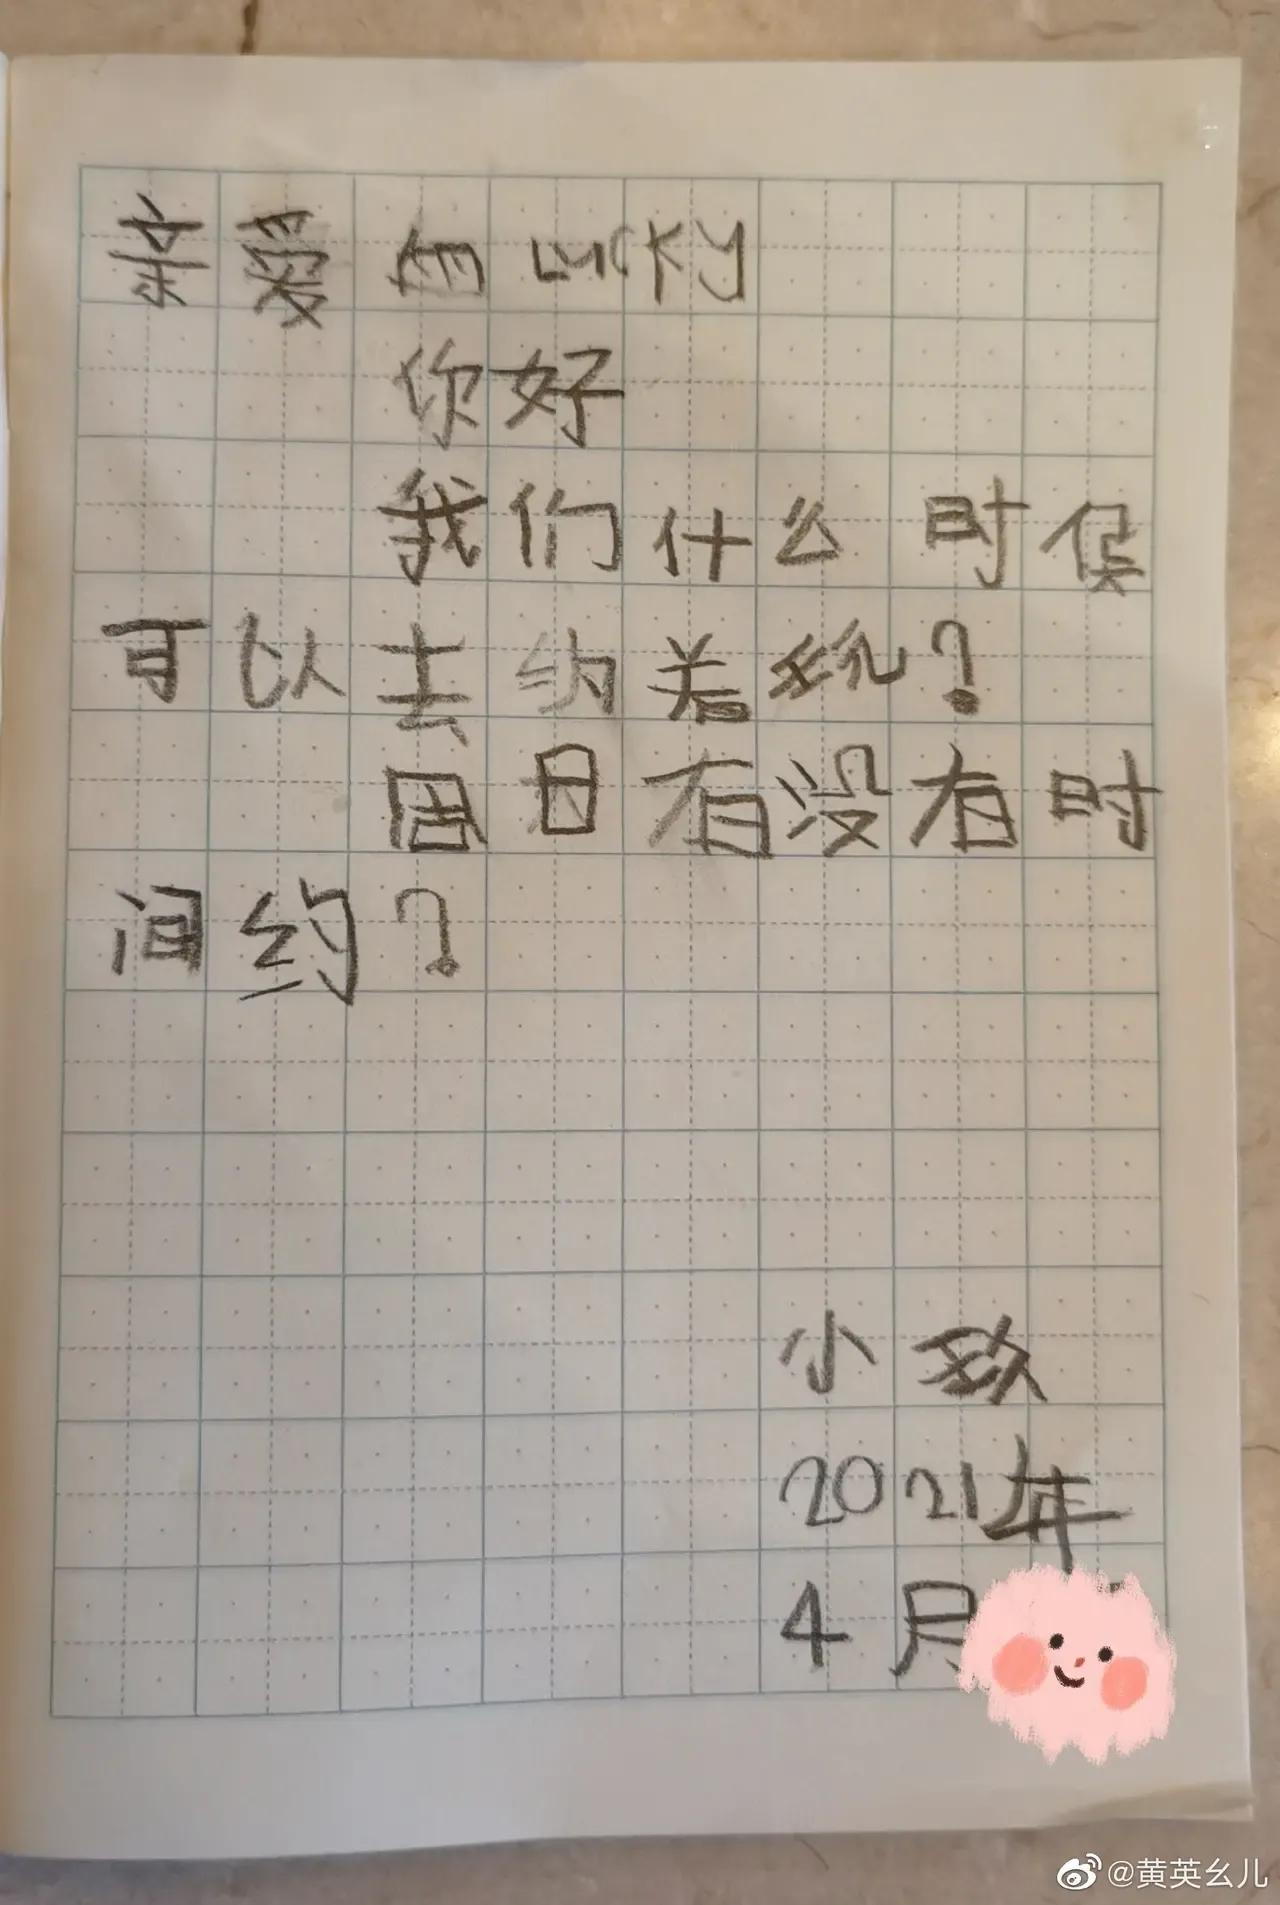 亲爱的lucky
你好
我们什么时候
可以去约着玩?
周日有没有时
间约?
小玖
2021年
4月
@黄英幺儿